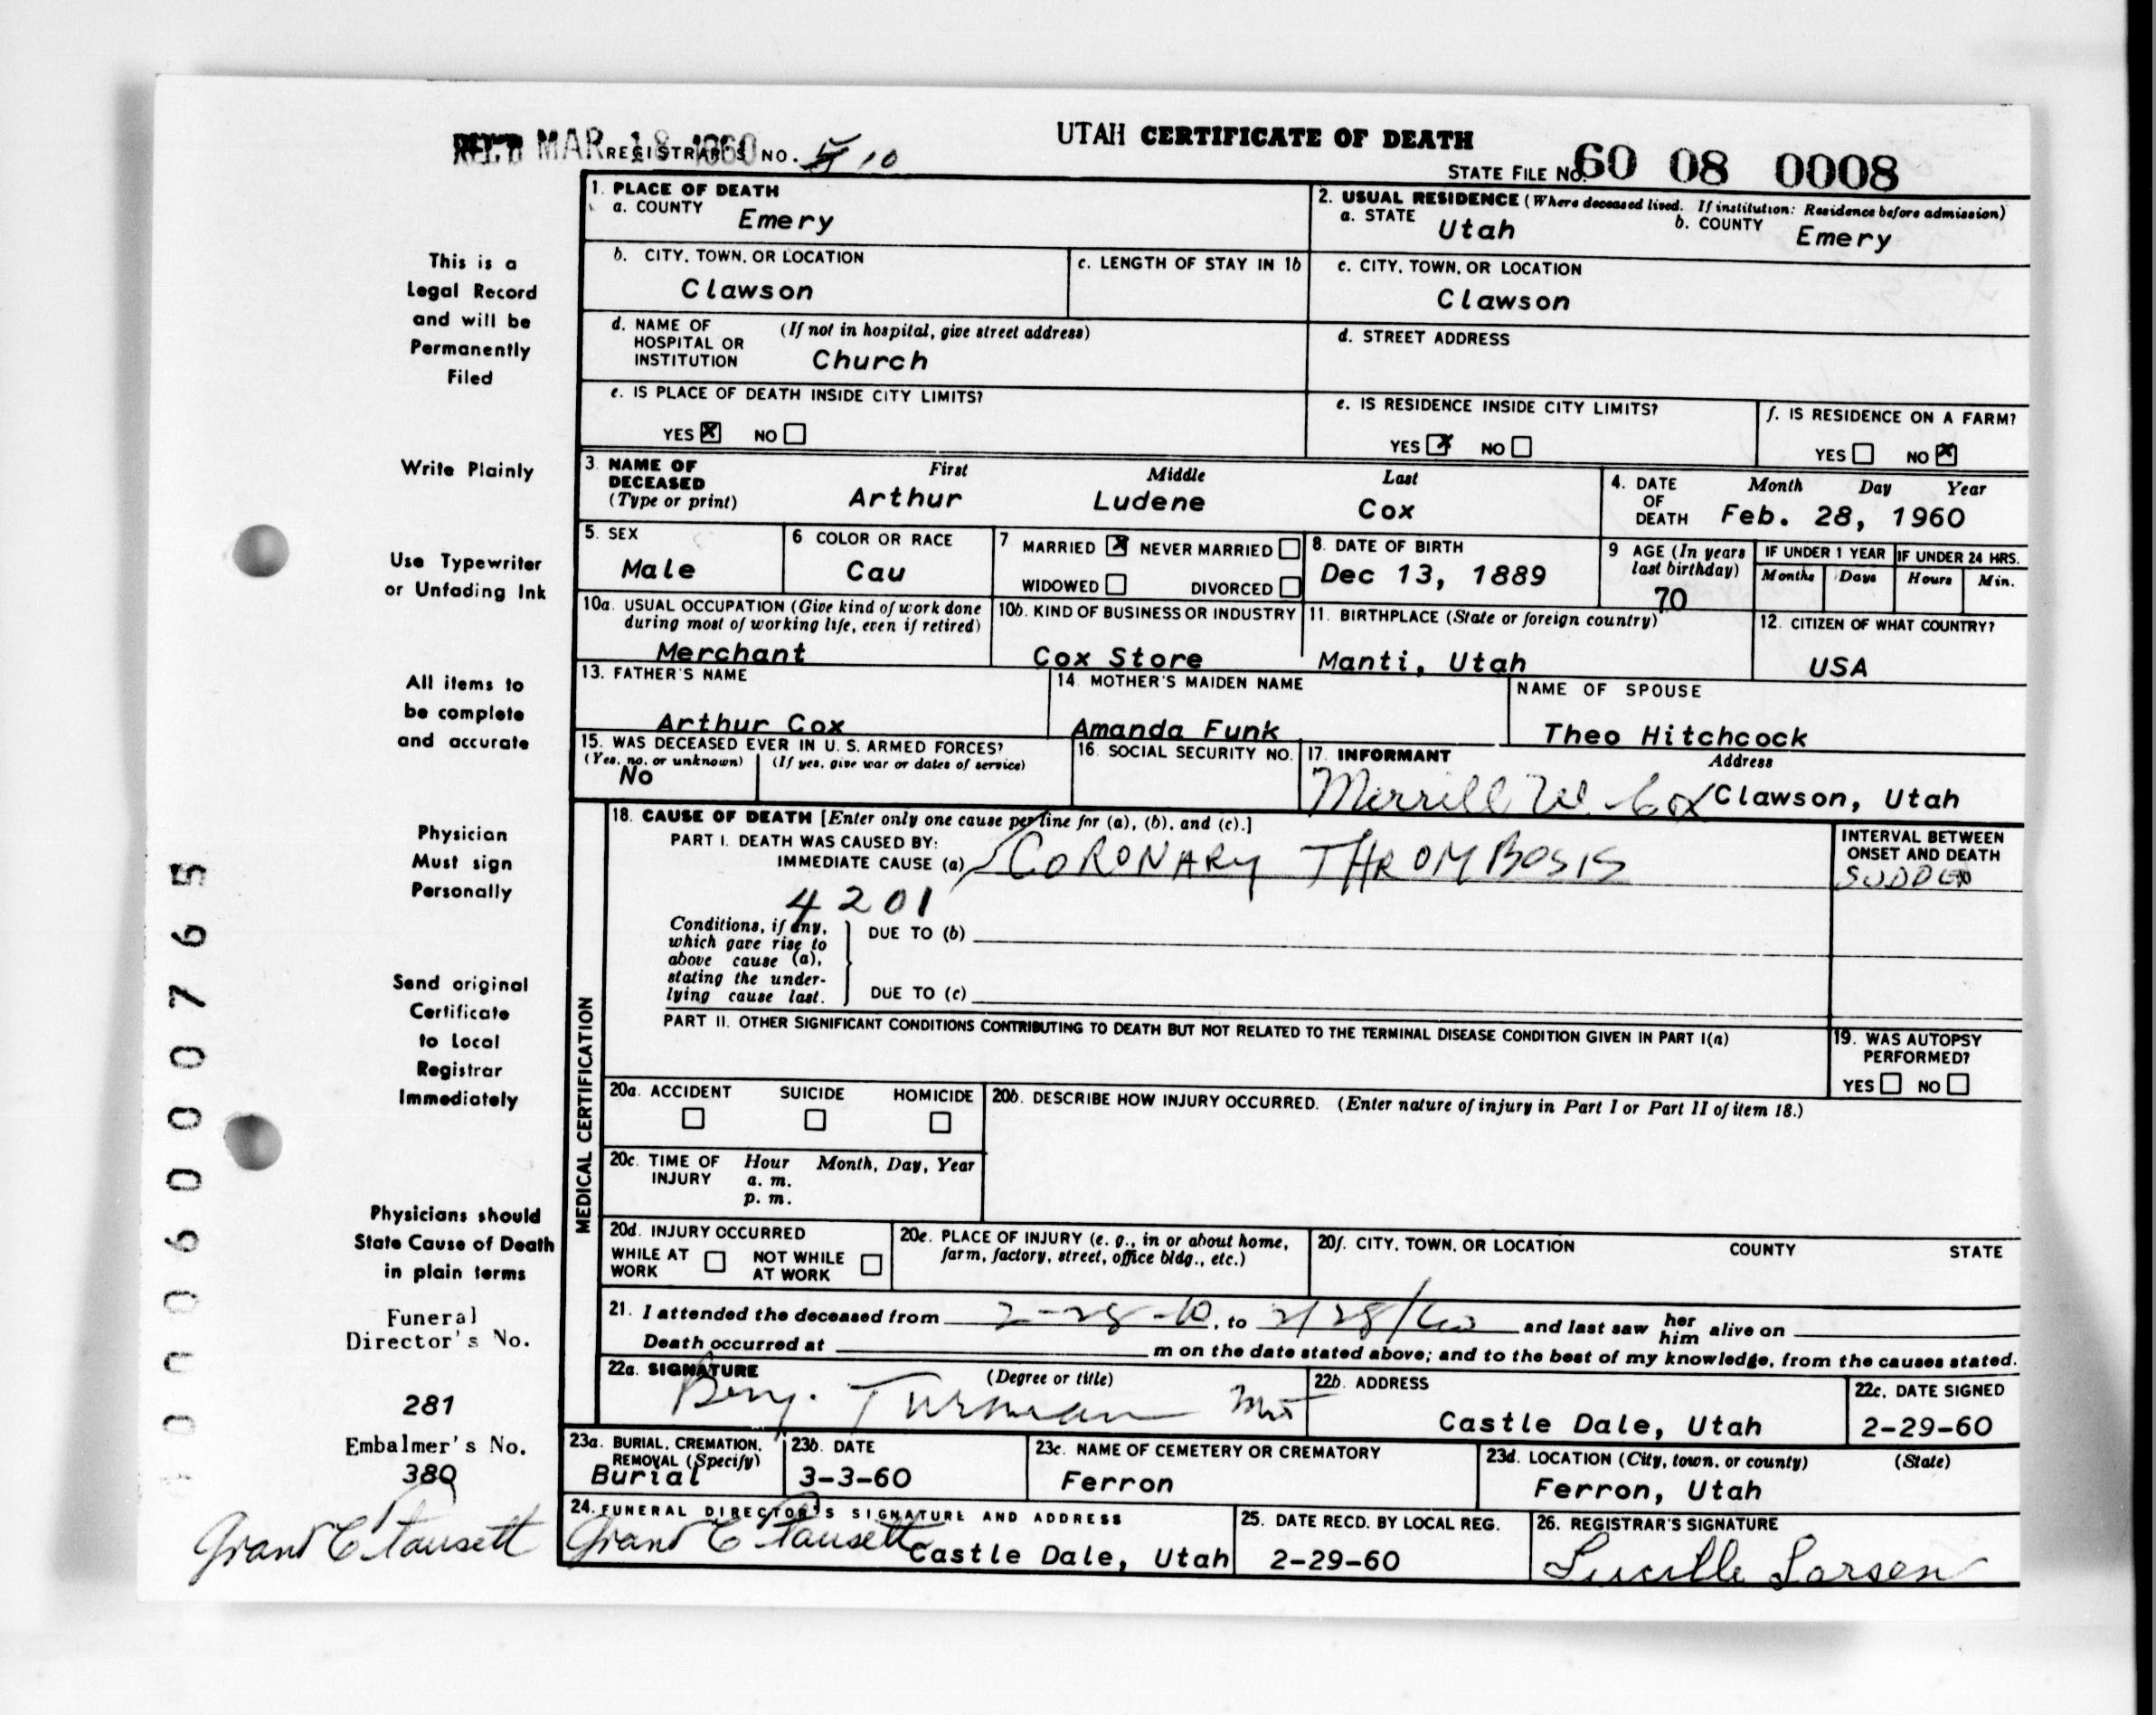 UTAH CERTIFICATE OF DEATH
REC'D MAR 18 1960 REGISTRAR'S NO. 10
STATE FILE NO. 60 08 0008
This is a
Legal Record
and will be
Permanently
Filed
Write Plainly
Use Typewriter
or Unfading Ink
All items to
be complete
and accurate
Physician
Must sign
Personally
Send original
Certificate
to Local
Registrar
Immediately
Physicians should
State Cause of Death
in plain terms
Funeral
Director's No.
281
Embalmer's No.
380
Grant C Fausett
1. PLACE OF DEATH
a. COUNTY Emery
2. USUAL RESIDENCE (Where deceased lived. If institution: Residence before admission)
a. STATE Utah b. COUNTY Emery
b. CITY, TOWN, OR LOCATION Clawson
c. LENGTH OF STAY IN 1b
c. CITY, TOWN, OR LOCATION Clawson
d. NAME OF HOSPITAL OR INSTITUTION (If not in hospital, give street address) Church
d. STREET ADDRESS
e. IS PLACE OF DEATH INSIDE CITY LIMITS?
YES X NO
e. IS RESIDENCE INSIDE CITY LIMITS?
YES X NO
f. IS RESIDENCE ON A FARM?
YES NO X
3. NAME OF DECEASED (Type or print) First Middle Last
Arthur Ludene Cox
4. DATE OF DEATH Month Day Year
Feb. 28, 1960
5. SEX Male
6 COLOR OR RACE Cau
7 MARRIED X NEVER MARRIED
WIDOWED DIVORCED
8. DATE OF BIRTH Dec 13, 1889
9 AGE (In years last birthday) 70
IF UNDER 1 YEAR IF UNDER 24 HRS.
Months Days Hours Min.
10a. USUAL OCCUPATION (Give kind of work done during most of working life, even if retired) Merchant
10b. KIND OF BUSINESS OR INDUSTRY Cox Store
11. BIRTHPLACE (State or foreign country) Manti, Utah
12. CITIZEN OF WHAT COUNTRY? USA
13. FATHER'S NAME Arthur Cox
14. MOTHER'S MAIDEN NAME Amanda Funk
NAME OF SPOUSE Theo Hitchcock
15. WAS DECEASED EVER IN U. S. ARMED FORCES?
(Yes, no, or unknown) (If yes, give war or dates of service)
No
16. SOCIAL SECURITY NO.
17. INFORMANT Address
Merrill W. Cox Clawson, Utah
MEDICAL CERTIFICATION
18. CAUSE OF DEATH [Enter only one cause per line for (a), (b), and (c).]
PART I. DEATH WAS CAUSED BY:
IMMEDIATE CAUSE (a) CORONARY THROMBOSIS
INTERVAL BETWEEN ONSET AND DEATH
SUDDEN
4201
Conditions, if any, which gave rise to above cause (a), stating the underlying cause last.
DUE TO (b)
DUE TO (c)
PART II. OTHER SIGNIFICANT CONDITIONS CONTRIBUTING TO DEATH BUT NOT RELATED TO THE TERMINAL DISEASE CONDITION GIVEN IN PART I(a)
19. WAS AUTOPSY PERFORMED?
YES NO
20a. ACCIDENT SUICIDE HOMICIDE
20b. DESCRIBE HOW INJURY OCCURRED. (Enter nature of injury in Part I or Part II of item 18.)
20c. TIME OF INJURY Hour Month, Day, Year
a. m.
p. m.
20d. INJURY OCCURRED
WHILE AT WORK NOT WHILE AT WORK
20e. PLACE OF INJURY (e. g., in or about home, farm, factory, street, office bldg., etc.)
20f. CITY, TOWN, OR LOCATION COUNTY STATE
21. I attended the deceased from 2-28-60, to 2/28/60 and last saw her him alive on
Death occurred at m on the date stated above; and to the best of my knowledge, from the causes stated.
22a. SIGNATURE (Degree or title)
Benj. Turman MD
22b. ADDRESS
Castle Dale, Utah
22c. DATE SIGNED
2-29-60
23a. BURIAL, CREMATION, REMOVAL (Specify) Burial
23b. DATE 3-3-60
23c. NAME OF CEMETERY OR CREMATORY Ferron
23d. LOCATION (City, town, or county) (State)
Ferron, Utah
24. FUNERAL DIRECTOR'S SIGNATURE AND ADDRESS
Grant C Fausett Castle Dale, Utah
25. DATE RECD. BY LOCAL REG.
2-29-60
26. REGISTRAR'S SIGNATURE
Lucille Larsen